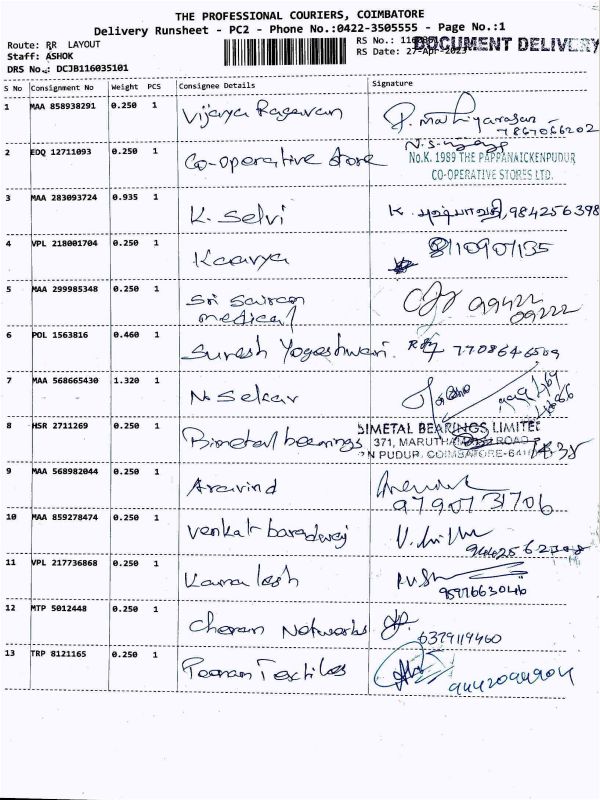 THE PROFESSIONAL COURIERS, COIMBATORE
Delivery Runsheet - PC2 - Phone No.:0422-3505555 - Page No.:1
Route: RR LAYOUT
RS No.:
DOCUMENT DELIVERY
Staff: ASHOK
RS Date: 27-Apr-2023
DRS No.: DCJB116035101
S No Consignment No Weight PCS Consignee Details Signature
1 MAA 858938291 0.250 1 Vijaya Ragavan P. Mathiyarasan
7867066202
2 EDQ 12711093 0.250 1 Co-operative store
No.K. 1989 THE PAPPANAICKENPUDUR
CO-OPERATIVE STORES LTD.
3 MAA 283093724 0.935 1 K. Selvi K. 984256398
4 VPL 218001704 0.250 1 Kaavya 8110901135
5 MAA 299985348 0.250 1 Sri Sairam
medical
99422
09222
6 POL 1563816 0.460 1 Suresh Yogeshwari. 7708646509
7 MAA 568665430 1.320 1 N. Sekar
8 HSR 2711269 0.250 1 Bimetal bearings
BIMETAL BEARINGS LIMITED
371, ROAD
N PUDUR, COIMBATORE-641
9 MAA 568982044 0.250 1 Aravind
9790731706
10 MAA 859278474 0.250 1 Venkat baradwaj
11 VPL 217736868 0.250 1 Kamalesh
12 MTP 5012448 0.250 1 Cheran Networks
6379119460
13 TRP 8121165 0.250 1 Poonam Textiles